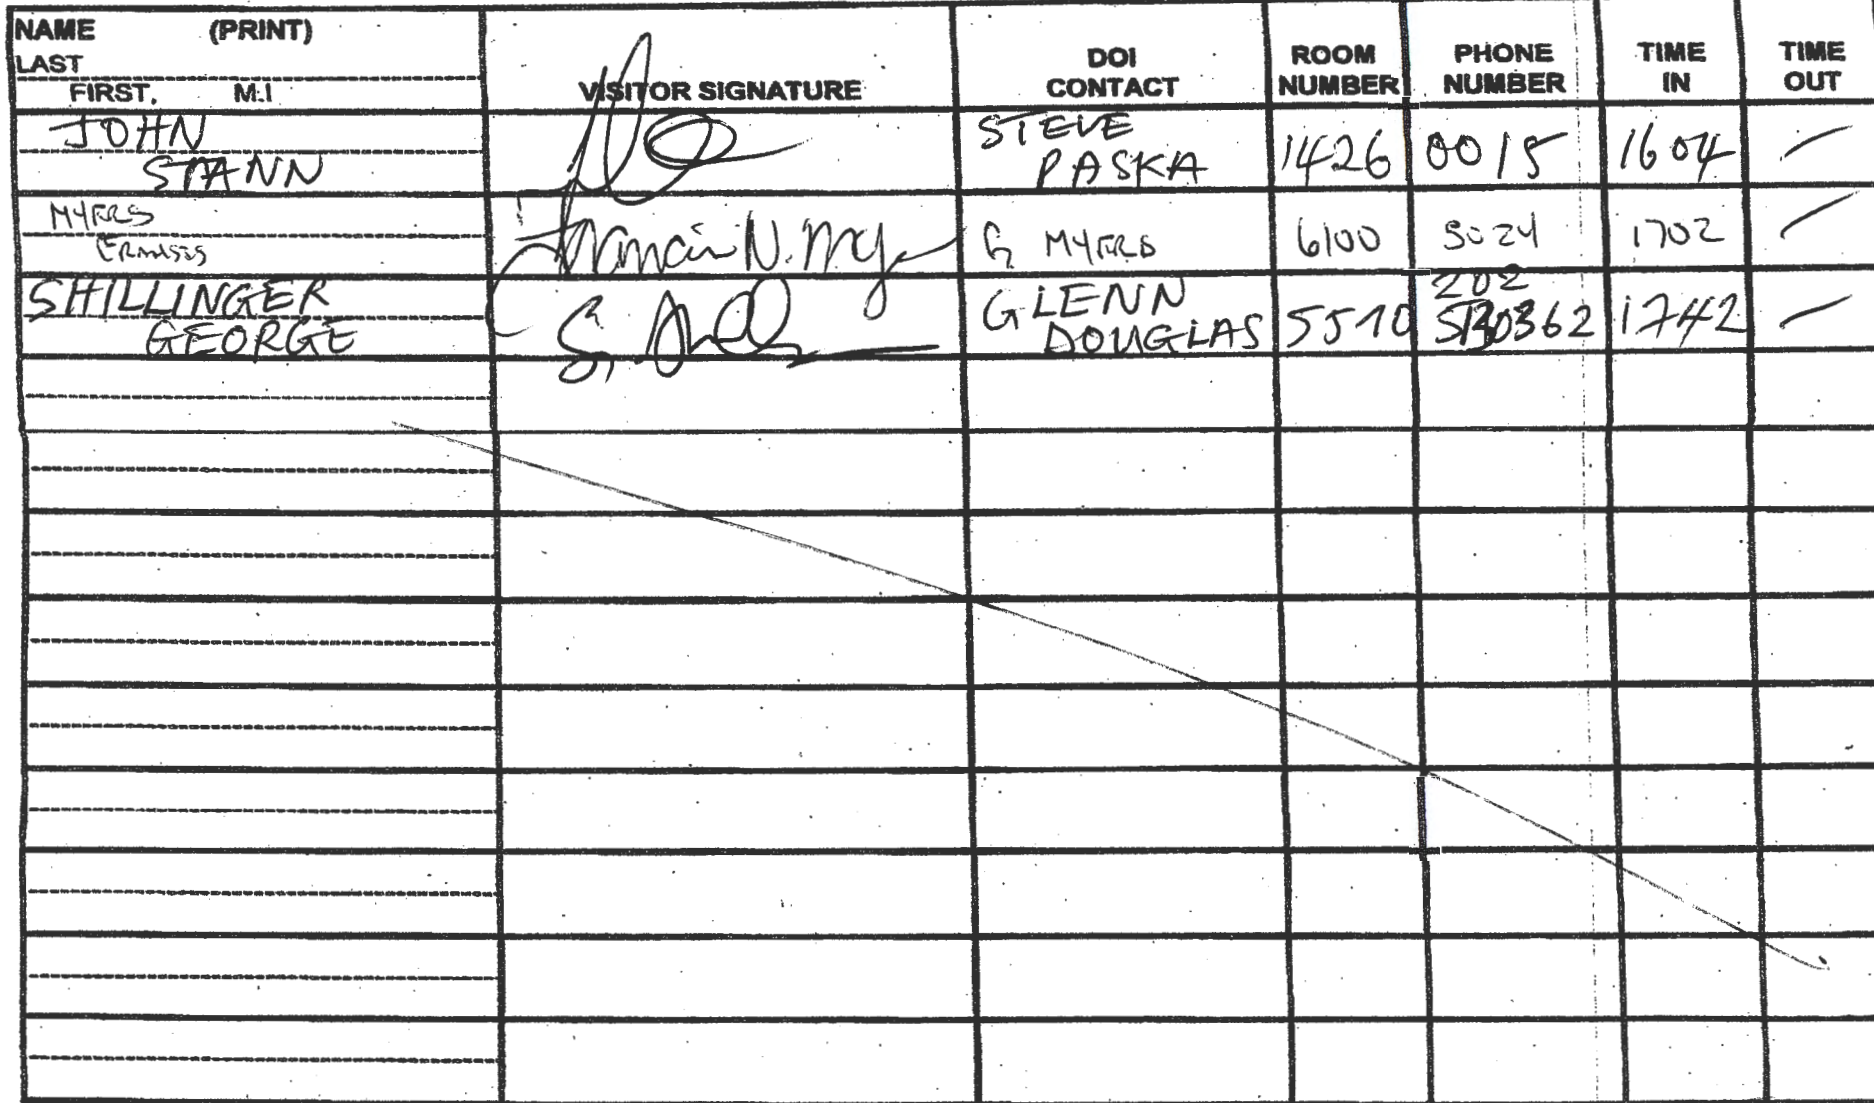 NAME (PRINT)
LAST
FIRST, M.I
VISITOR SIGNATURE
DOI
CONTACT
ROOM
NUMBER
PHONE
NUMBER
TIME
IN
TIME
OUT
JOHN
STANN
STEVE
PASKA
1426
0015
1604
—
MYERS
Francis N. My
G MYERS
6100
3024
1702
—
SHILLINGER
GEORGE
GLENN
DOUGLAS
5510
202
0362
1742
—